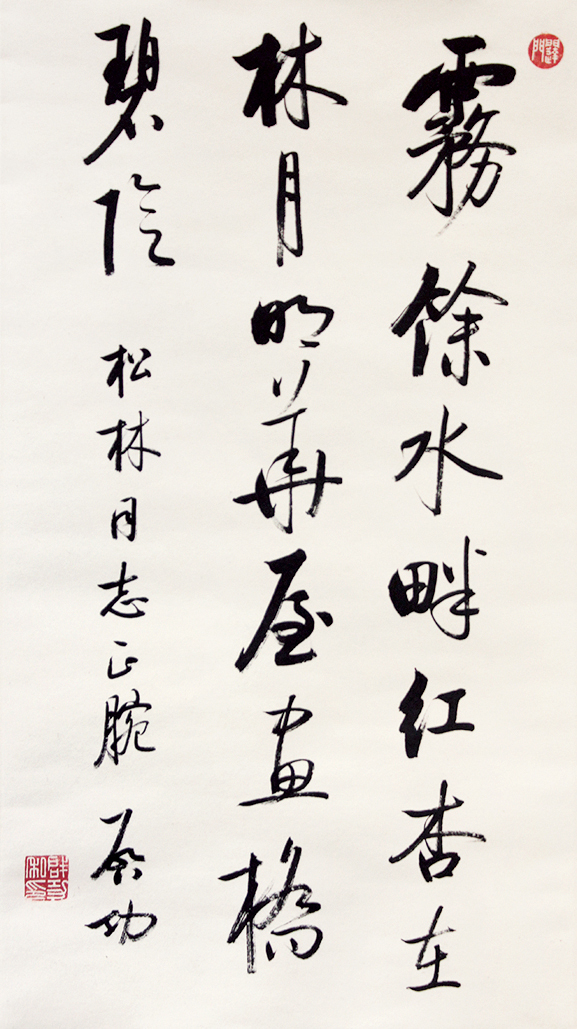 霧餘水畔红杏在
林月明華屋畫橋
碧陰
松林同志正腕 启功